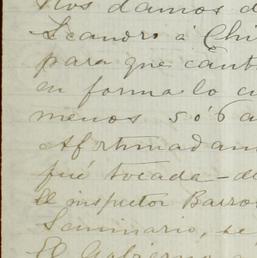 Nos damos d
Leandro á Chi
para que cant
en forma lo cu
menos 5 ó 6 a
Afortunadam
fué tocada - de
El inspector Barro
Seminario, se
El Gobierno